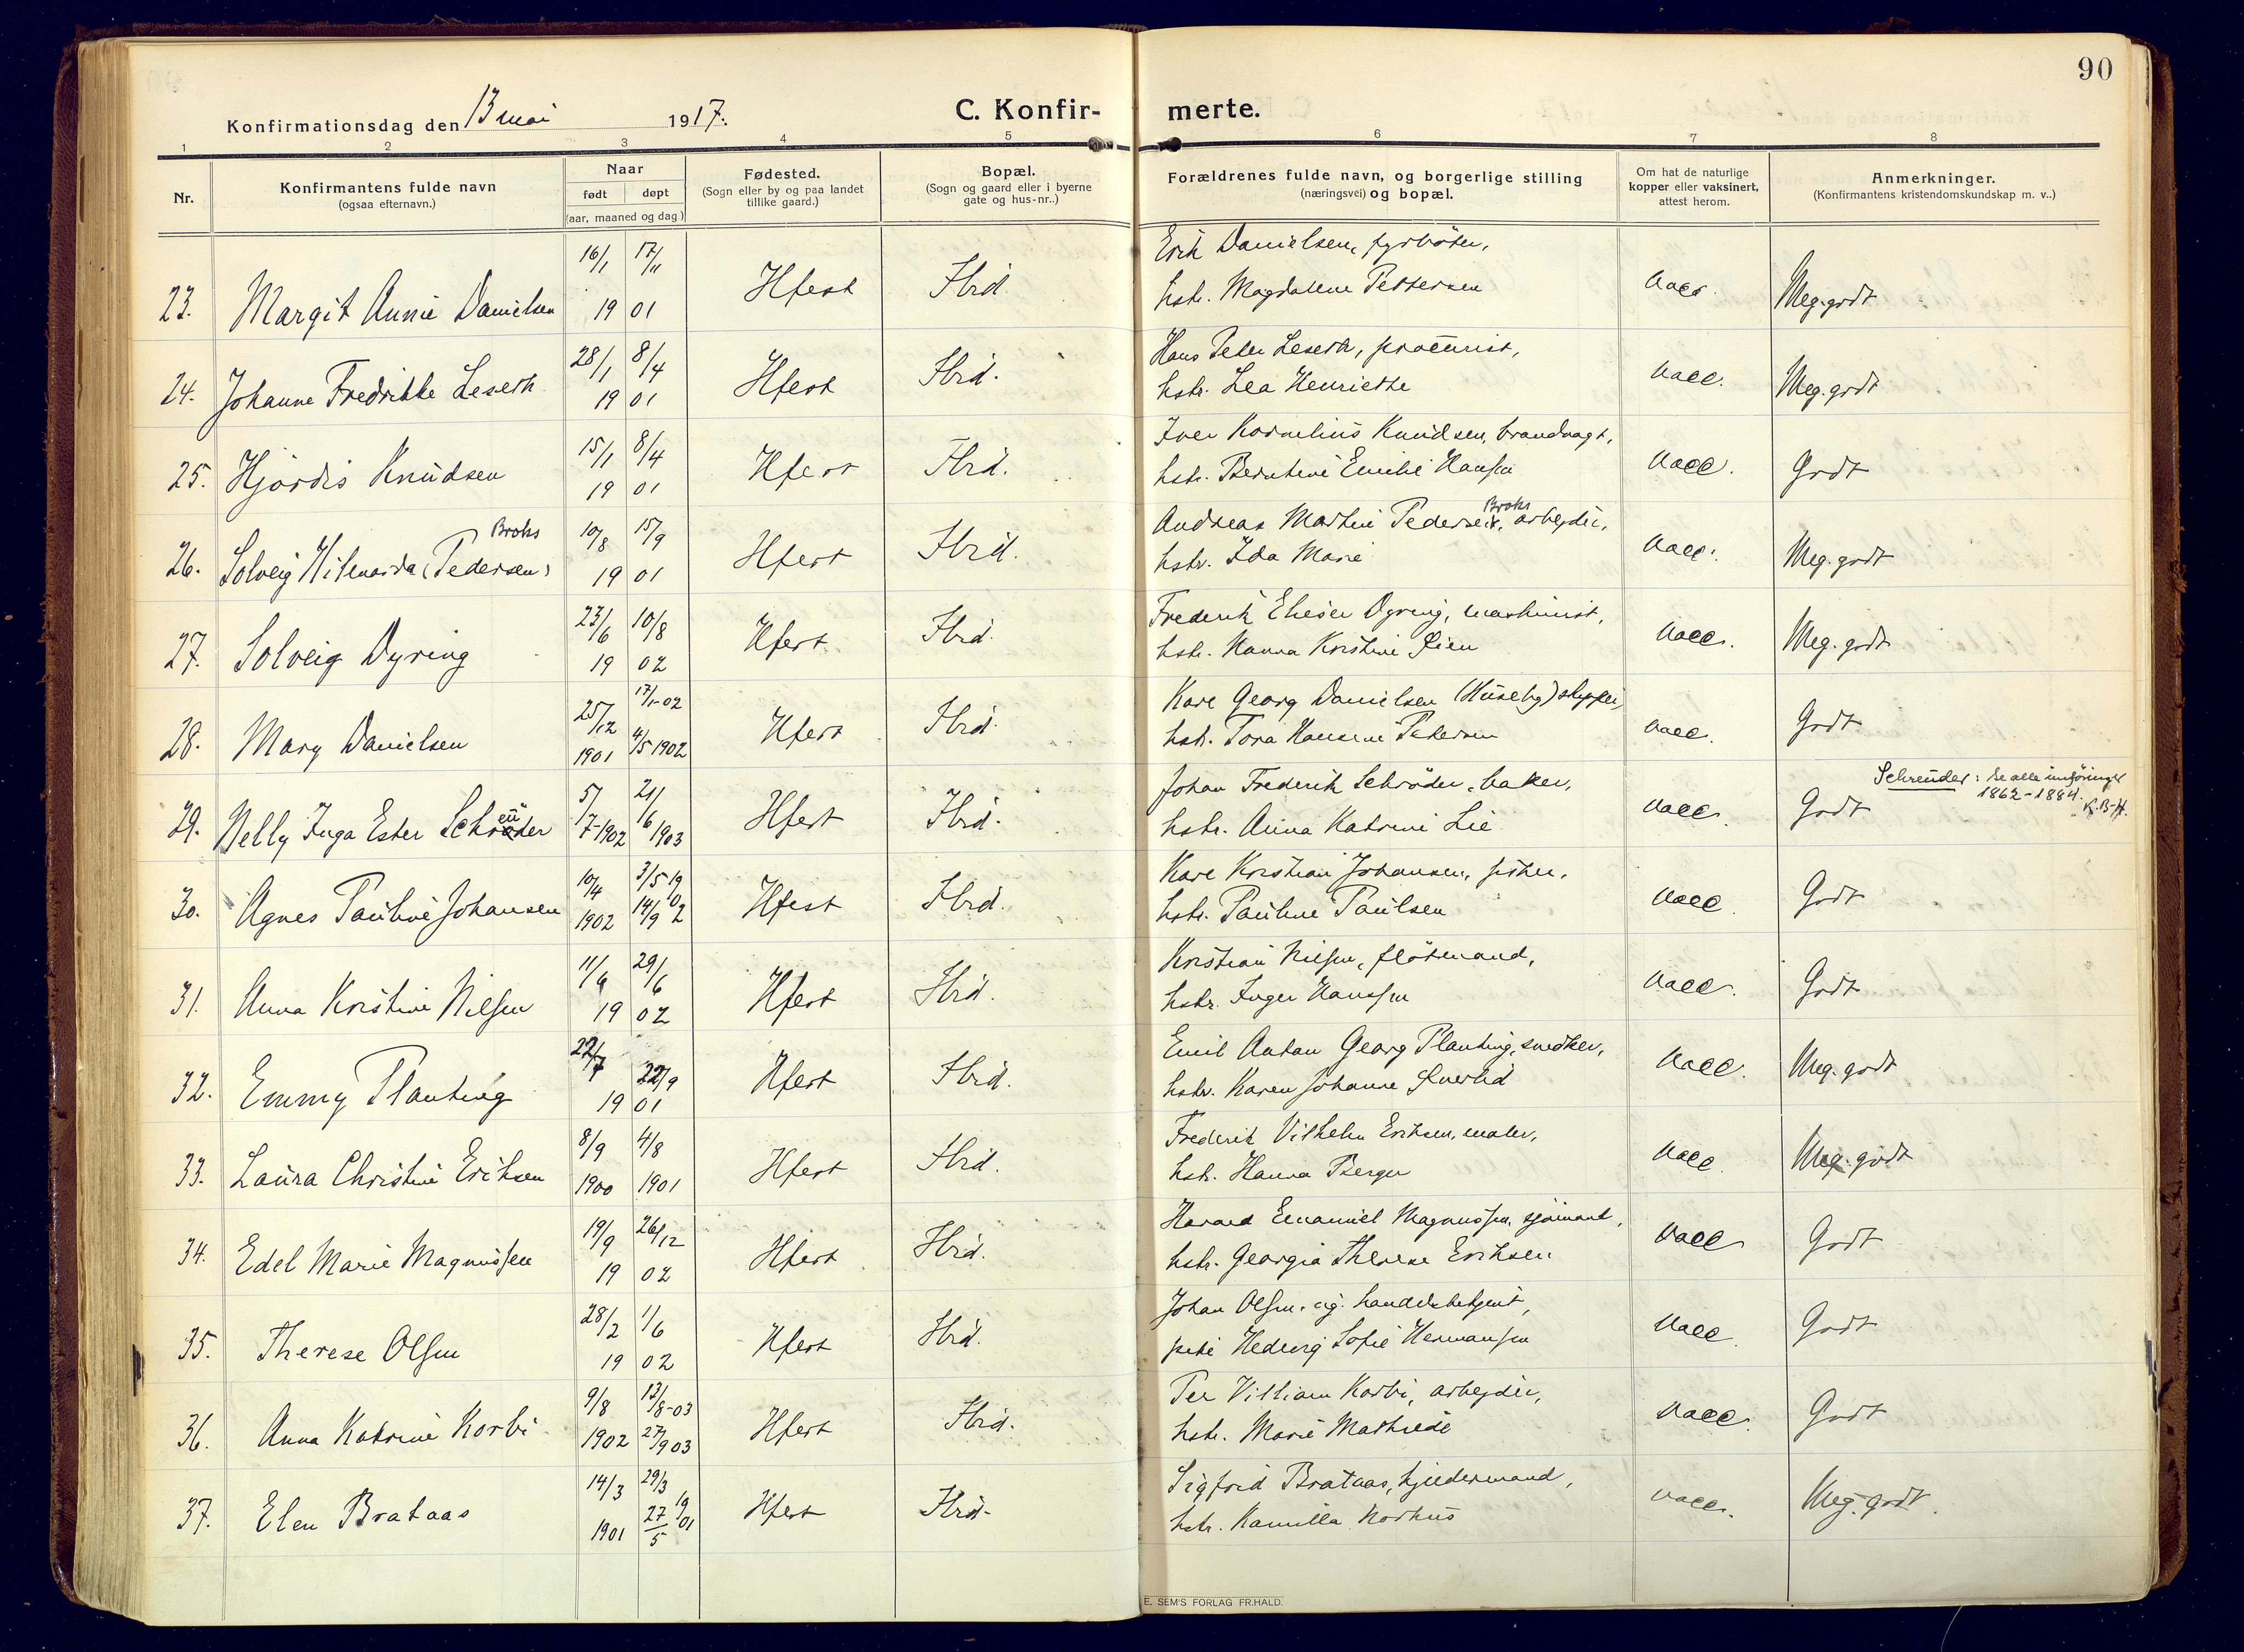 90
Konfirmationsdag den 13 mai 1917.
C. Konfir- merte.
1 2 3 4 5 6 7 8
Nr.
Konfirmantens fulde navn
(ogsaa efternavn.)
Naar
født døpt
(aar, maaned og dag.)
Fødested.
(Sogn eller by og paa landet
tillike gaard.)
Bopæl.
(Sogn og gaard eller i byerne
gate og hus-nr..)
Forældrenes fulde navn, og borgerlige stilling
(næringsvei) og bopæl.
Om hat de naturlige
kopper eller vaksinert,
attest herom.
Anmerkninger.
(Konfirmantens kristendomskundskap m. v..)
16/1 17/11 Erik Danielsen, fyrbøter,
23. Margit Annie Danielsen 19 01 Hfest Hbid. hstr. Magdalene Pettersen Vacc. Meg. godt
28/1 8/4 Hans Peter Leseth, procurist,
24. Johanne Fredrikke Leseth 19 01 Hfest Hbid. hstr. Lea Henriette Vacc. Meg. godt
15/1 8/4 Iver Kornelius Knudsen, brandvagt,
25. Hjördis Knudsen 19 01 Hfest Hbid. hstr. Berntine Emilie Hansen Vacc. Godt
Broks 10/8 15/9 Andreas Martin Pedersen, Broks arbejder,
26. Solveig (Pedersen) 19 01 Hfest Hbid. hstr. Ida Marie Vacc. Meg. godt
23/6 10/8 Frederik Elieser Dyring, maskinist,
27. Solveig Dyring 19 02 Hfest Hbid. hstr. Hanna Kristine Øien Vacc. Meg. godt
25/12 17/1-02 Kare Georg Danielsen (Huseby) skipper,
28. Mary Danielsen 1901 4/5 1902 Hfest Hbid. hstr. Tora Hansine Pedersen Vacc. Godt
5/7-1902 21/6 1903 Johan Frederik Schröder, baker, Schreuder: se alle innføringer
1862-1884. K.B-H.
29. Nelly Inga Ester Schreuder Hfest Hbid. hstr. Anna Katrine Lie Vacc. Godt
10/4 3/5 19 Kare Kristian Johansen, fisker,
30. Agnes Pauline Johansen 1902 14/9 02 Hfest Hbid. hstr. Pauline Paulsen Vacc. Godt
11/4 29/6 Kristian Nilsen, fløtmand,
31. Anna Kristine Nilsen 19 02 Hfest Hbid. hstr. Inger Hanssen Vacc. Godt
22/7 22/9 Emil Anton Georg Planting, snedker,
32. Emmy Planting 19 01 Hfest Hbid. hstr. Karen Johanne Vacc. Meg. godt
8/9 4/8 Frederik Vilhelm Eriksen, maler,
33. Laura Christine Eriksen 1900 1901 Hfest Hbid. hstr. Hanna Berger Vacc. Meg. godt
19/9 26/12 Harald Emanuel Magnussen, sjømand,
34. Edel Marie Magnussen 19 02 Hfest Hbid. hstr. Georgia Therese Eriksen Vacc. Godt
28/2 1/6 Johan Olsen, ug. handelsbetjent,
35. Therese Olsen 19 02 Hfest Hbid. pike Hedvig Sofie Hermansen Vacc. Godt
9/8 13/8-03 Per Villiam Korbi, arbejder,
36. Anna Katrine Korbi 1902 27/9 03 Hfest Hbid. hstr. Marie Mathilde Vacc. Godt
14/3 29/3 Sigfrid Brataas, kjedermand,
37. Elen Brataas 1901 27/5 1901 Hfest Hbid. hstr. Kamilla Norhus Vacc. Meg. godt.
E. SEM'S FORLAG FR.HALD.